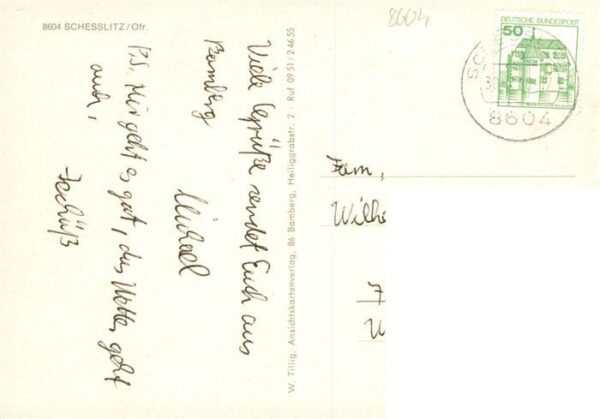 8604 SCHESSLITZ/Ofr.
8604
DEUTSCHE BUNDESPOST
50
8604
Viele Grüße sendet Euch aus
Bamberg
Michael
P.S. Mir geht es gut, das Wetter geht
auch,
Tschüß
W. Tillig, Ansichtskartenverlag, 86 Bamberg, Heiliggrabstr. 2 · Ruf 09 51 / 2 46 55
Fam.
Wilhe